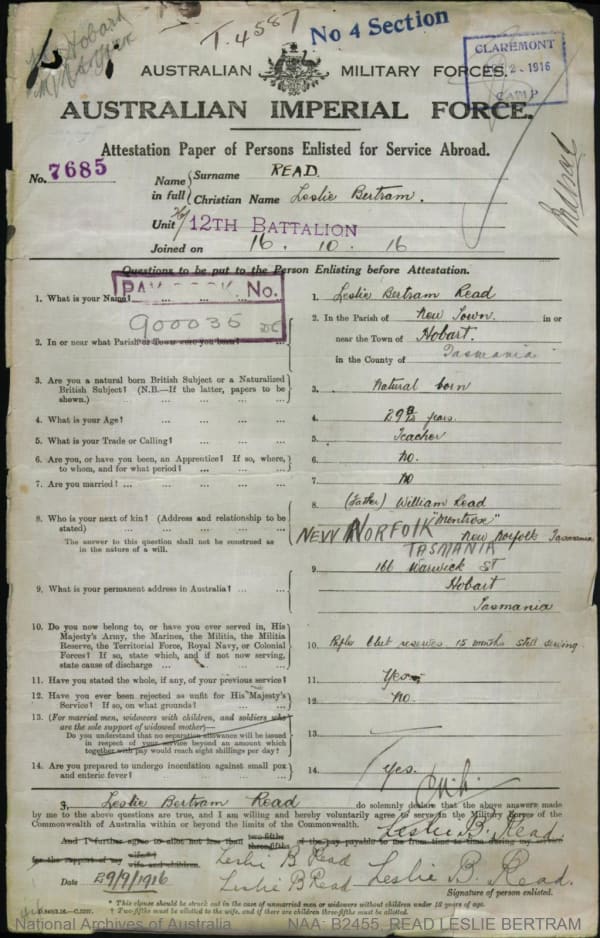 Hobart
T.4587
No 4 Section
CLAREMONT
2-1916
CAMP
AUSTRALIAN MILITARY FORCES.
AUSTRALIAN IMPERIAL FORCE.
Attestation Paper of Persons Enlisted for Service Abroad.
No. 7685
Name in full
Surname READ.
Christian Name Leslie Bertram.
Unit 12TH BATTALION
Joined on 16. 10. 16
Questions to be put to the Person Enlisting before Attestation.
PAY BOOK. No.
900035
1. What is your Name? ... ... ...
1. Leslie Bertram Read
2. In or near what Parish or Town were you born? ...
2. In the Parish of New Town. in or
near the Town of Hobart.
in the County of Tasmania
3. Are you a natural born British Subject or a Naturalized
British Subject? (N.B.—If the latter, papers to be
shown.) ... ... ... ...
3. Natural born
4. What is your Age? ... ... ...
4. 29 years.
5. What is your Trade or Calling? ... ... ...
5. Teacher
6. Are you, or have you been, an Apprentice? If so, where,
to whom, and for what period? ... ... ...
6. No.
7. Are you married? ... ... ... ...
7. No
8. Who is your next of kin? (Address and relationship to be
stated) ... ... ... ...
The answer to this question shall not be construed as
in the nature of a will.
8. (Father) William Read
"Montrose"
NEW NORFOLK New Norfolk Tasmania
TASMANIA
9. What is your permanent address in Australia? ... ...
9. 166 Warwick St
Hobart
Tasmania
10. Do you now belong to, or have you ever served in, His
Majesty's Army, the Marines, the Militia, the Militia
Reserve, the Territorial Force, Royal Navy, or Colonial
Forces? If so, state which, and if not now serving,
state cause of discharge ... ... ...
10. Rifle Club reserves 15 months still serving
11. Have you stated the whole, if any, of your previous service?
11. Yes
12. Have you ever been rejected as unfit for His Majesty's
Service? If so, on what grounds? ... ...
12. No.
13. (For married men, widowers with children, and soldiers who
are the sole support of widowed mother)—
Do you understand that no separation allowance will be issued
in respect of your service beyond an amount which
together with pay would reach eight shillings per day?
13.
14. Are you prepared to undergo inoculation against small pox
and enteric fever? ... ... ...
14. Yes.
I, Leslie Bertram Read do solemnly declare that the above answers made
by me to the above questions are true, and I am willing and hereby voluntarily agree to serve in the Military Forces of the
Commonwealth of Australia within or beyond the limits of the Commonwealth.
Leslie B. Read.
And I further agree to allot not less than two-fifths three-fifths of the pay payable to me from time to time during my service
for the support of my wife* wife and children.
Leslie B Read Leslie B. Read.
Date 29/9/1916 Leslie B Read
Signature of person enlisted.
* This clause should be struck out in the case of unmarried men or widowers without children under 18 years of age.
† Two-fifths must be allotted to the wife, and if there are children three-fifths must be allotted.
National Archives of Australia NAA: B2455, READ LESLIE BERTRAM